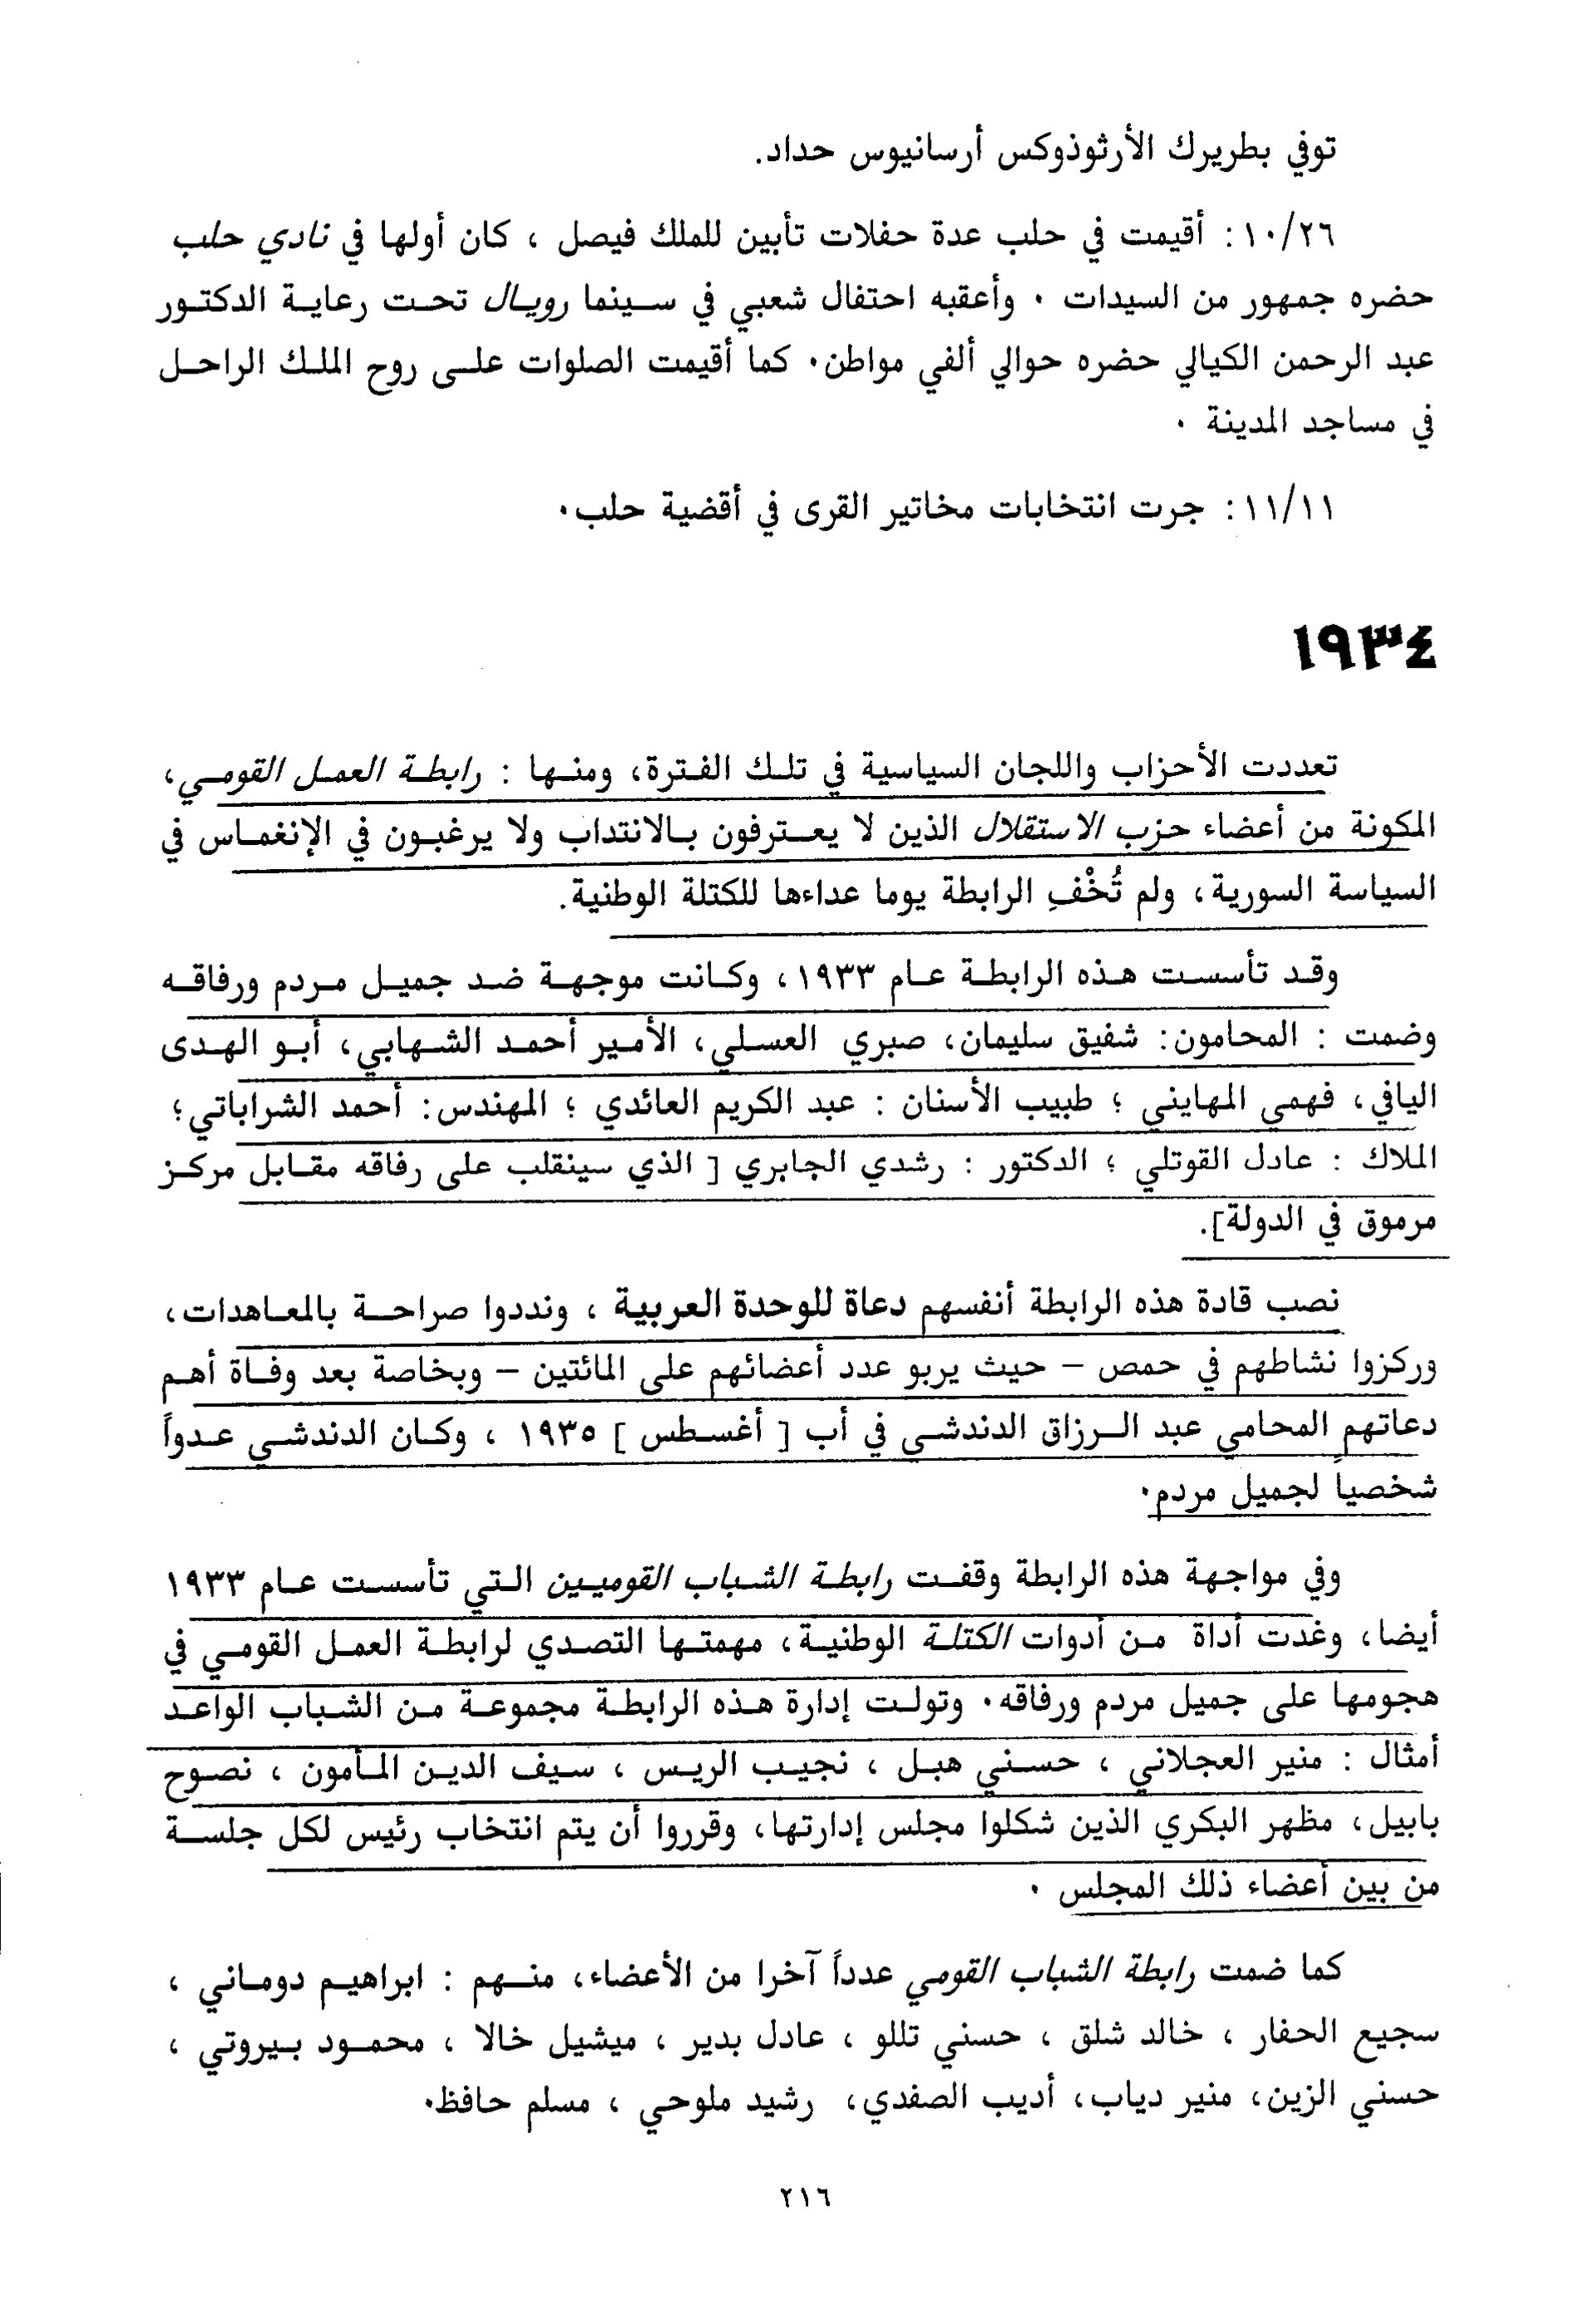 توفي بطريرك الأرثوذوكس أرسانيوس حداد.
١٠/٢٦: أقيمت في حلب عدة حفلات تأبين للملك فيصل ، كان أولها في نادي حلب
حضره جمهور من السيدات ٠ وأعقبه احتفال شعبي في سينما رويال تحت رعاية الدكتور
عبد الرحمن الكيالي حضره حوالي ألفي مواطن٠ كما أقيمت الصلوات على روح الملك الراحل
في مساجد المدينة ٠
١١/١١: جرت انتخابات مخاتير القرى في أقضية حلب٠
١٩٣٤
تعددت الأحزاب واللجان السياسية في تلك الفترة، ومنها : رابطة العمل القومي،
المكونة من أعضاء حزب الاستقلال الذين لا يعترفون بالانتداب ولا يرغبون في الإنغماس في
السياسة السورية، ولم تُخْفِ الرابطة يوما عداءها للكتلة الوطنية.
وقد تأسست هذه الرابطة عام ١٩٣٣، وكانت موجهة ضد جميل مردم ورفاقه
وضمت : المحامون: شفيق سليمان، صبري العسلي، الأمير أحمد الشهابي، أبو الهدى
اليافي، فهمي المهايني ؛ طبيب الأسنان : عبد الكريم العائدي ؛ المهندس: أحمد الشراباتي؛
الملاك : عادل القوتلي ؛ الدكتور : رشدي الجابري [ الذي سينقلب على رفاقه مقابل مركز
مرموق في الدولة].
نصب قادة هذه الرابطة أنفسهم دعاة للوحدة العربية ، ونددوا صراحة بالمعاهدات،
وركزوا نشاطهم في حمص – حيث يربو عدد أعضائهم على المائتين – وبخاصة بعد وفاة أهم
دعاتهم المحامي عبد الرزاق الدندشي في أب [ أغسطس ] ١٩٣٥ ، وكان الدندشي عدواً
شخصياً لجميل مردم٠
وفي مواجهة هذه الرابطة وقفت رابطة الشباب القوميين التي تأسست عام ١٩٣٣
أيضا، وغدت أداة من أدوات الكتلة الوطنية، مهمتها التصدي لرابطة العمل القومي في
هجومها على جميل مردم ورفاقه٠ وتولت إدارة هذه الرابطة مجموعة من الشباب الواعد
أمثال : منير العجلاني ، حسني هبل ، نجيب الريس ، سيف الدين المأمون ، نصوح
بابيل، مظهر البكري الذين شكلوا مجلس إدارتها، وقرروا أن يتم انتخاب رئيس لكل جلسة
من بين أعضاء ذلك المجلس ٠
كما ضمت رابطة الشباب القومي عدداً آخرا من الأعضاء، منهم : ابراهيم دوماني ،
سجيع الحفار ، خالد شلق ، حسني تللو ، عادل بدير ، ميشيل خالا ، محمود بيروتي ،
حسني الزين، منير دياب، أديب الصفدي، رشيد ملوحي ، مسلم حافظ٠
٢١٦